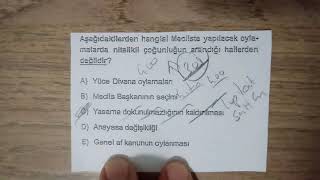 Aşağıdakilerden hangisi Mecliste yapılacak oyla-
malarda nitelikli çoğunluğun arandığı hallerden
değildir?
A) Yüce Divana oylamaları
B) Meclis Başkanının seçimi
C) Yasama dokunulmazlığının kaldırılması
D) Anayasa değişikliği
E) Genel af kanunun oylanması